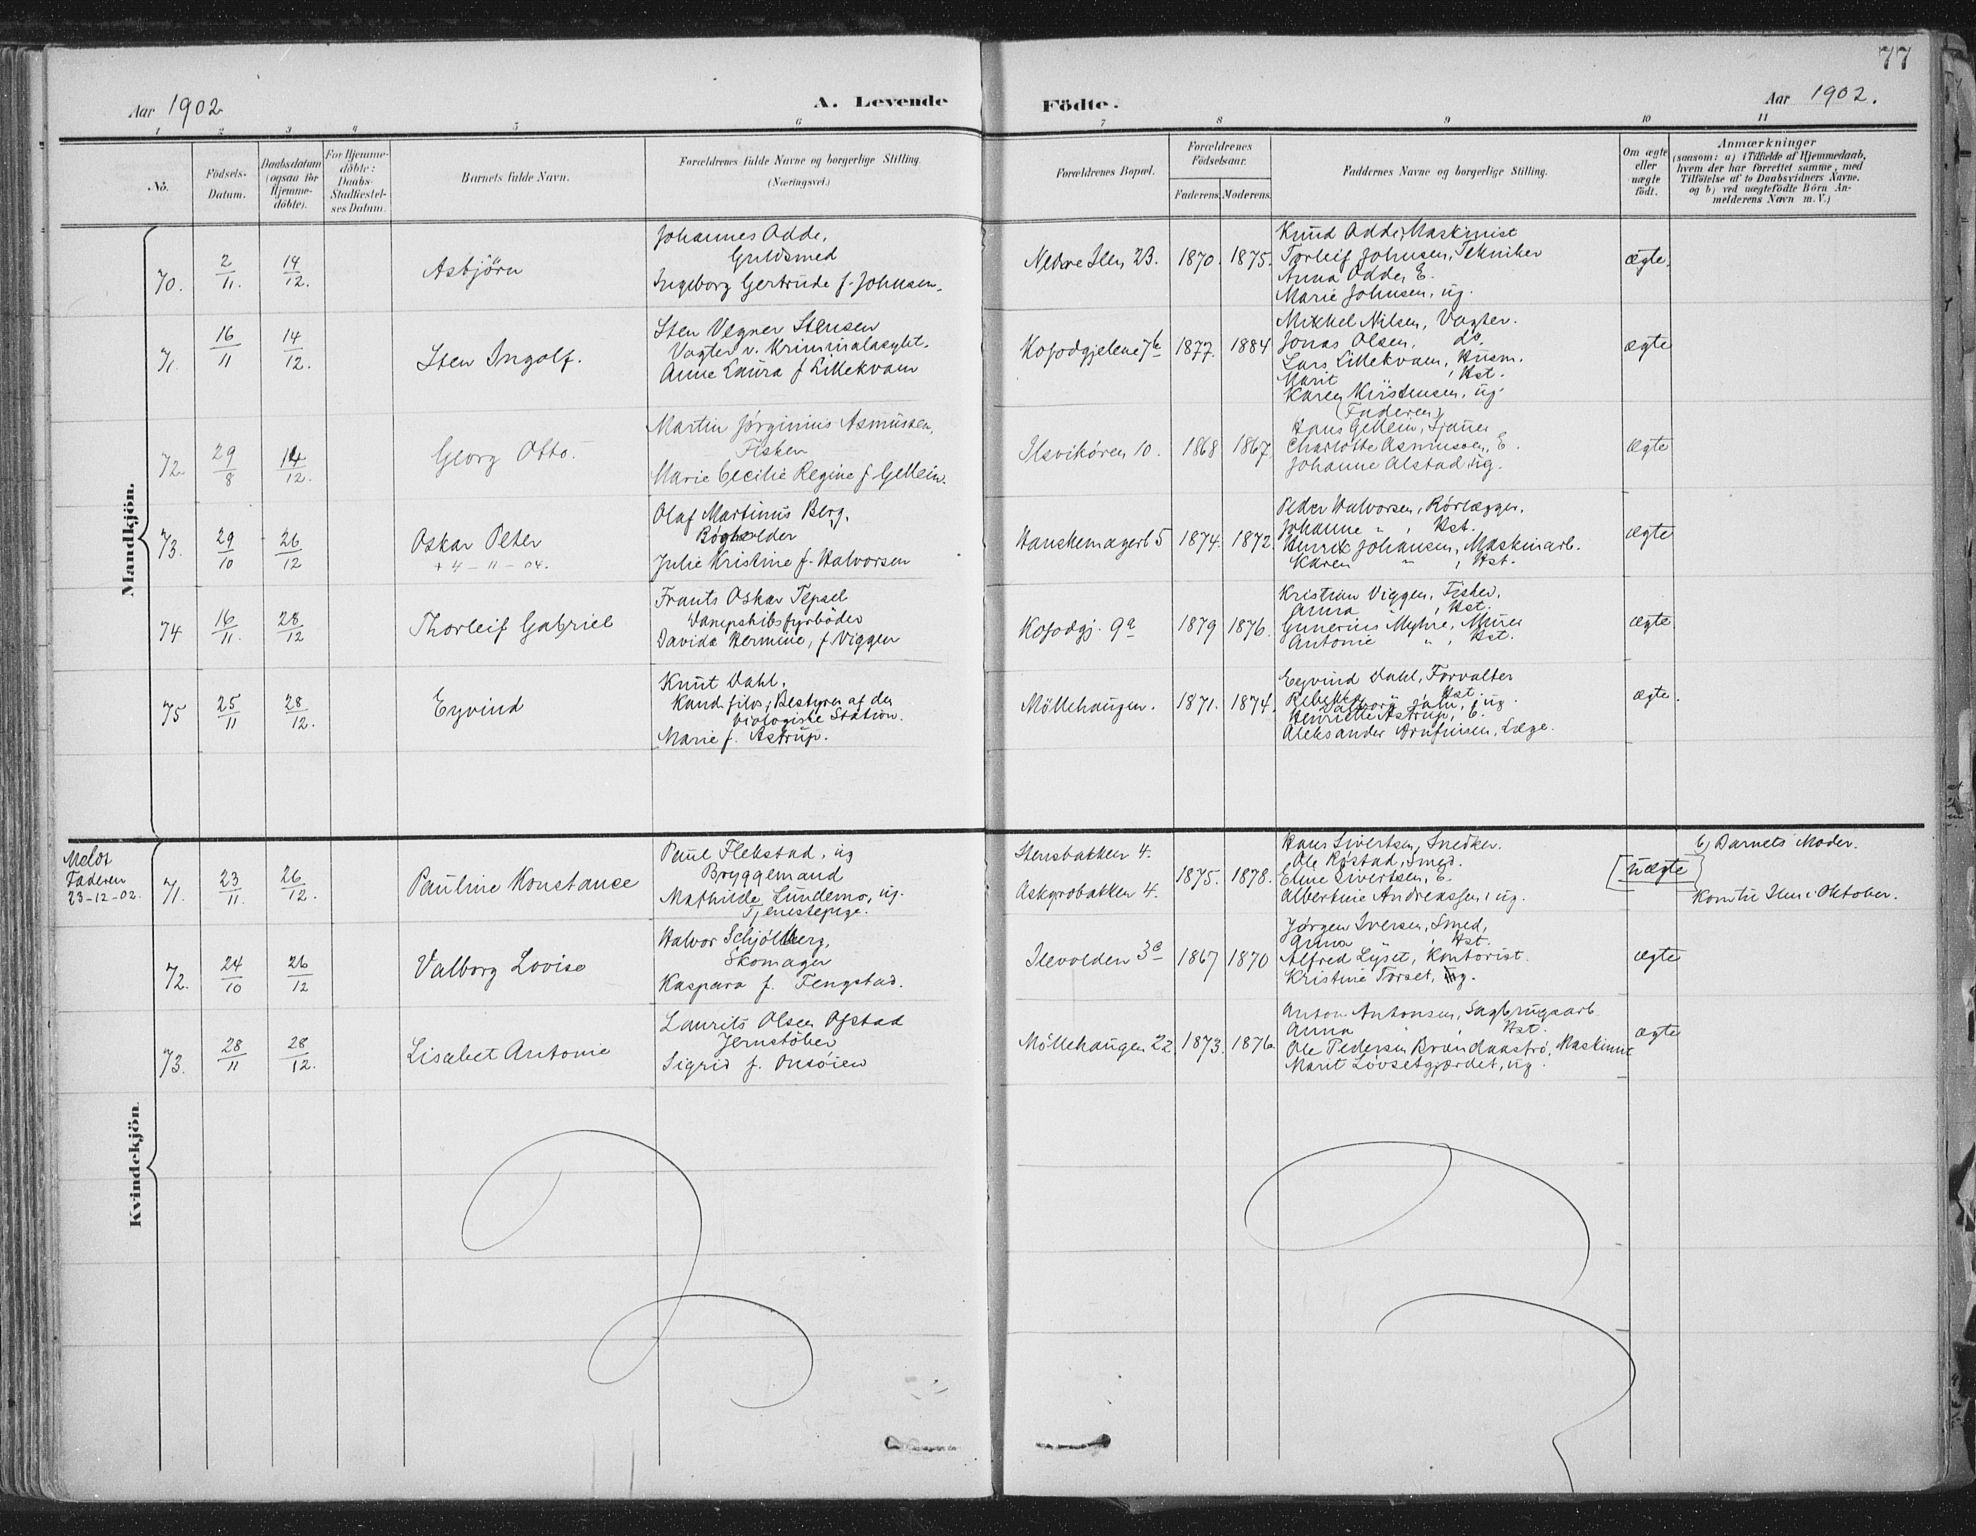 77
Aar 1902
A. Levende
Födte.
Aar 1902.
1 2 3 4 5 6 7 8 9 10 11
No.
Födsels-
Datum.
Daabsdatum
(ogsaa for
Hjemme-
döbte).
For Hjemme-
döbte:
Daabs-
Stadfæstel-
ses Datum.
Barnets fulde Navn.
Forældrenes fulde Navne og borgerlige Stilling.
(Næringsvei.)
Forældrenes Bopæl.
Forældrenes
Födselsaar.
Faderens.
Moderens.
Faddernes Navne og borgerlige Stilling.
Om ægte
eller
uægte
födt.
Anmærkninger
(saasom: a) i Tilfælde af Hjemmedaab,
hvem der har forrettet samme, med
Tilföielse af to Daabsvidners Navne.
og b) ved uægtefödte Börn An-
melderens Navn m. V.)
Mandkjön.
70.
2/11.
14/12.
Asbjörn
Johannes Odde,
Guldsmed
Ingeborg Gertrude f. Johnsen.
Nedre Ilen 23.
1870.
1875.
Knud Odde, Maskinist
Torleif Johnsen, Tekniker
Anna Odde, E.
Marie Johnsen, ug.
ægte.
71.
16/11
14/12.
Sten Ingolf.
Sten Vegner Stensen
Vagter v. Kriminalasylet.
Anne Laura f Lillekvam
Kofodgjelene 7b
1877.
1884
Mikkel Nilsen, Vagter.
Jonas Olsen, do.
Lars Lillekvam, Husm.
Marit , Hst.
Karen Kirstensen, ug.
ægte
72.
29/8
14/12.
Georg Otto.
Martin Jørginius Asmussen,
Fisker
Marie Cecilie Regine f Gellein.
Ilsvikøren 10.
1868
1867.
(Faderen)
Hans Gellein, Sjauer
Charlotte Asmussen, E.
Johanne Alstad, ug.
ægte
73.
29/10
26/12
Oskar Peter
+ 4-11-04.
Olaf Martinus Berg,
Bogholder
Julie Kristine f. Halvorsen
Hanskemagerb 5
1874.
1872.
Peder Halvorsen, Rørlægger.
Johanne " , Hst.
Henrik Johansen, Maskinarb.
Karen " , Hst.
ægte
74
16/11.
28/12
Thorleif Gabriel
Frants Oskar Tepsel
Dampskibsfyrböder
Davida Hermine, f Viggen
Kofodgj. 9a
1879
1876.
Kristian Viggen, Fisker,
Anna , Hst.
Gunerius Myhre, Murer
Antonie " , Hst.
ægte
75
25/11
28/12.
Eyvind
Knut Dahl.
Kand. filos, Bestyrer af den
biologiske Station.
Marie f. Astrup.
Möllehaugen.
1871.
1874.
Eyvind Dahl, Forvalter
Rebekka " Hst.
Dahl, ug.
Henriette Astrup, E.
Aleksander Arnfinsen, Læge.
ægte.
Kvindekjön.
Meldt
Faderen
23-12-02.
71.
23/11.
26/12.
Pauline Konstanse
Paul Flekstad, ug
Bryggemand
Mathilde Lundemo, ug.
Tjenestepige.
Stensbakken 4.
Askgrobakken 4.
1875.
1878.
Hans Sivertsen, Snedker.
Ole Röstad, Smed.
Eline Sivertsen, E.
Albertine Andreassen, ug.
uægte
b) Barnets Moder.
Kom til Ilen i Oktober.
72.
24/10
26/12
Valborg Lovise
Halvor Schjölberg,
Skomager
Kaspara f. Fengstad.
Ilevolden 3c
1867
1870
Jørgen Iversen, Smed,
Anna , Hst.
Alfred Lyset, Kontorist.
Kristine Forset, ug.
ægte
73.
28/11
28/12.
Lisabet Antonie
Laurits Olsen Ofstad
Jernstöber
Sigrid f. Onsöien
Möllehaugen 22
1873.
1876.
Anton Antonsen, Sagbrugsarb.
Anna " , Hst.
Ole Pedersen Brandaaströ, Maskinist
Marit Lövsetgjærdet, ug.
ægte